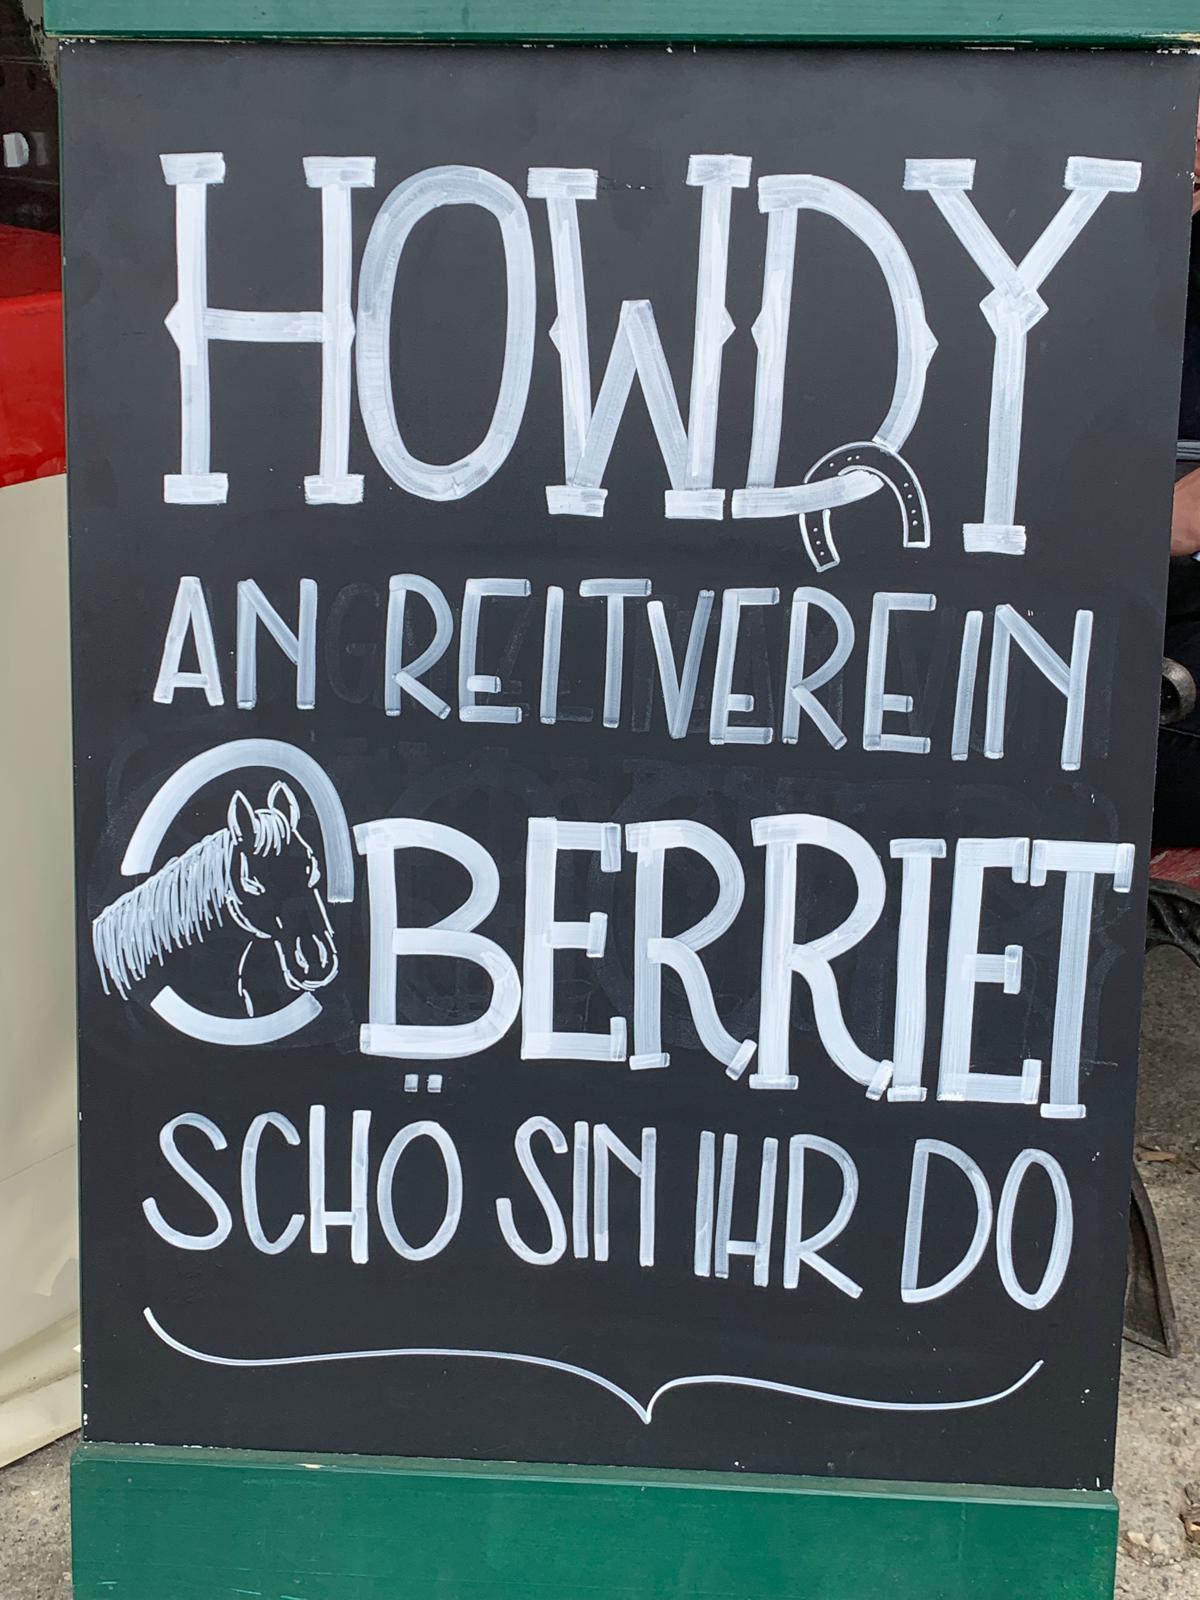 HOWDY
AN REITVEREIN
OBERRIET
SCHÖ SIN IHR DO